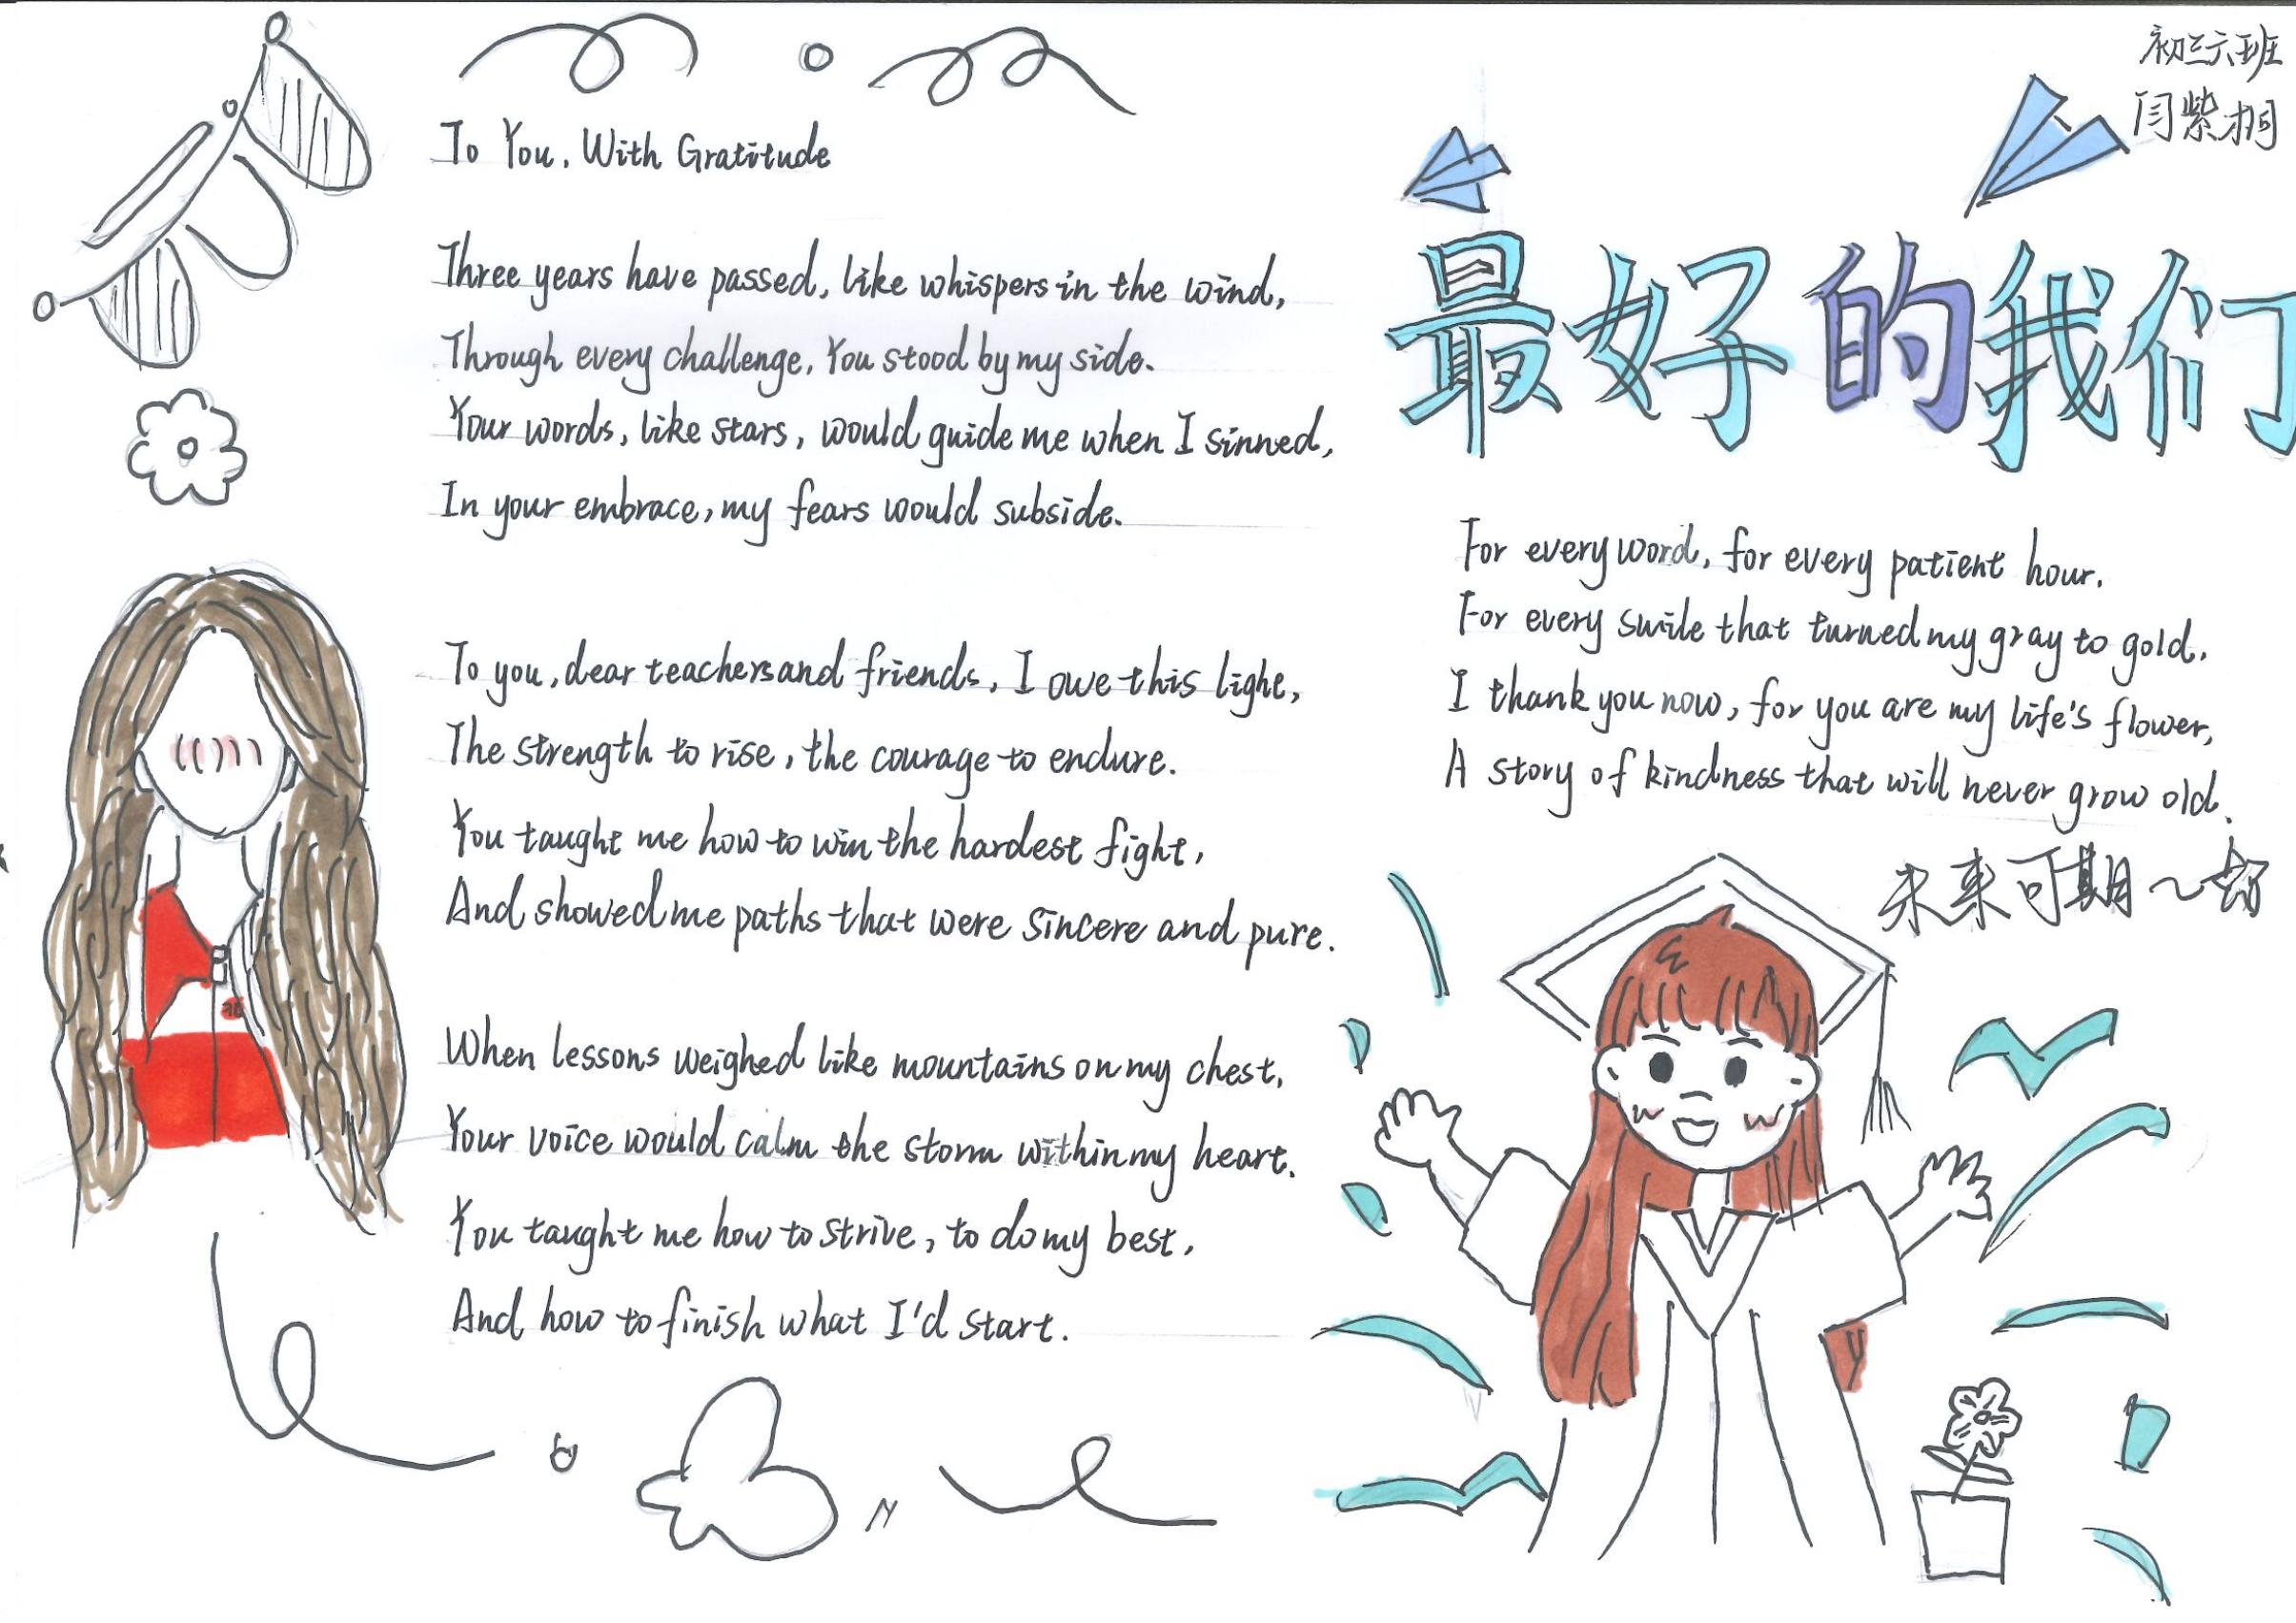 初三六班
闫紫桐
To You, With Gratitude
Three years have passed, like whispers in the wind,
Through every challenge, You stood by my side.
Your words, like stars, would guide me when I sinned,
In your embrace, my fears would subside.
To you, dear teachers and friends, I owe this light,
The strength to rise, the courage to endure.
You taught me how to win the hardest fight,
And showed me paths that were sincere and pure.
When lessons weighed like mountains on my chest,
Your voice would calm the storm within my heart.
You taught me how to strive, to do my best,
And how to finish what I'd start.
最好的我们
For every word, for every patient hour.
For every smile that turned my gray to gold,
I thank you now, for you are my life's flower,
A story of kindness that will never grow old.
未来可期~